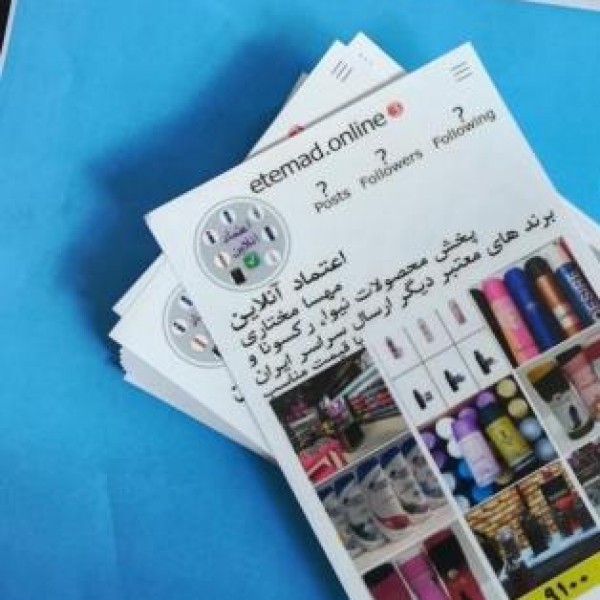 etemad.online 3
? ? ?
Posts Followers Following
اعتماد آنلاین
اعتماد آنلاین
مهسا مختاری
پخش محصولات نیوا، رکسونا و
برند های معتبر دیگر ارسال سراسر ایران
با قیمت مناسب
۹۱۰۰